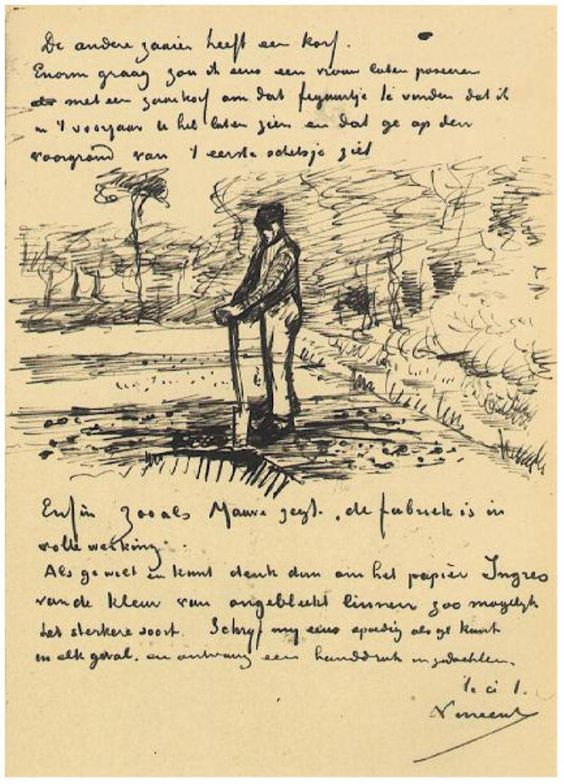 De andere zaaier heeft een korf.
Enorm graag zou ik eens een vrouw laten poseeren
met een zaaikorf om dat figuurtje te vinden dat ik
u 't voorjaar u heb laten zien en dat ge op den
voorgrond van 't eerste schetsje ziet
Enfin zooals Mauve zegt, de fabriek is in
volle werking.
Als ge wilt en kunt denk dan om het papier Ingres
van de kleur van ongebleekt linnen zoo mogelijk
het sterkere soort. Schryf my eens spoedig als ge kunt
in elk geval, en ontvang een handdruk in gedachten,
t.à t.
Vincent